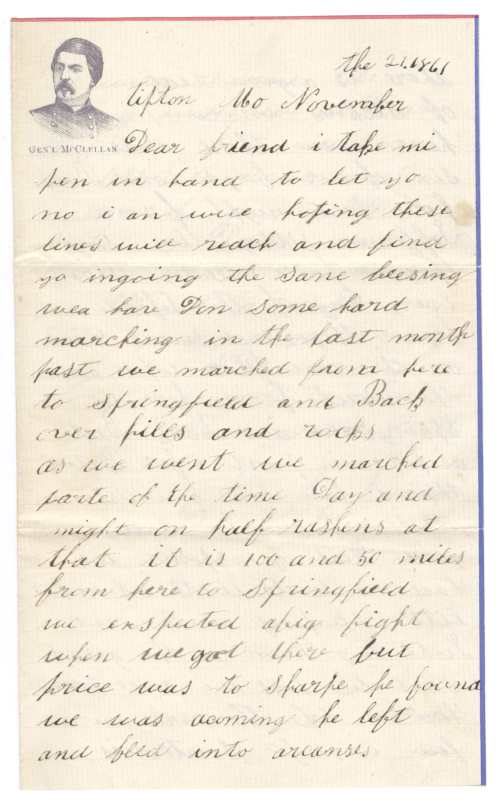 the 21. 1861
tipton Mo November
GEN'L McCLELLAN
Dear friend i take mi
pen in hand to let yo
no i am well hoping these
lines will reach and find
yo ingoing the same blessing
wea have Don some hard
marching in the last month
past we marched from here
to Springfield and Back
over hills and rocks
as we went we marched
parte of the time Day and
might on half rashins at
that it is 100 and 50 miles
from here to Springfield
we exspected abig fight
when we got there but
price was to sharpe he found
we was acoming he left
and fled into arcanses